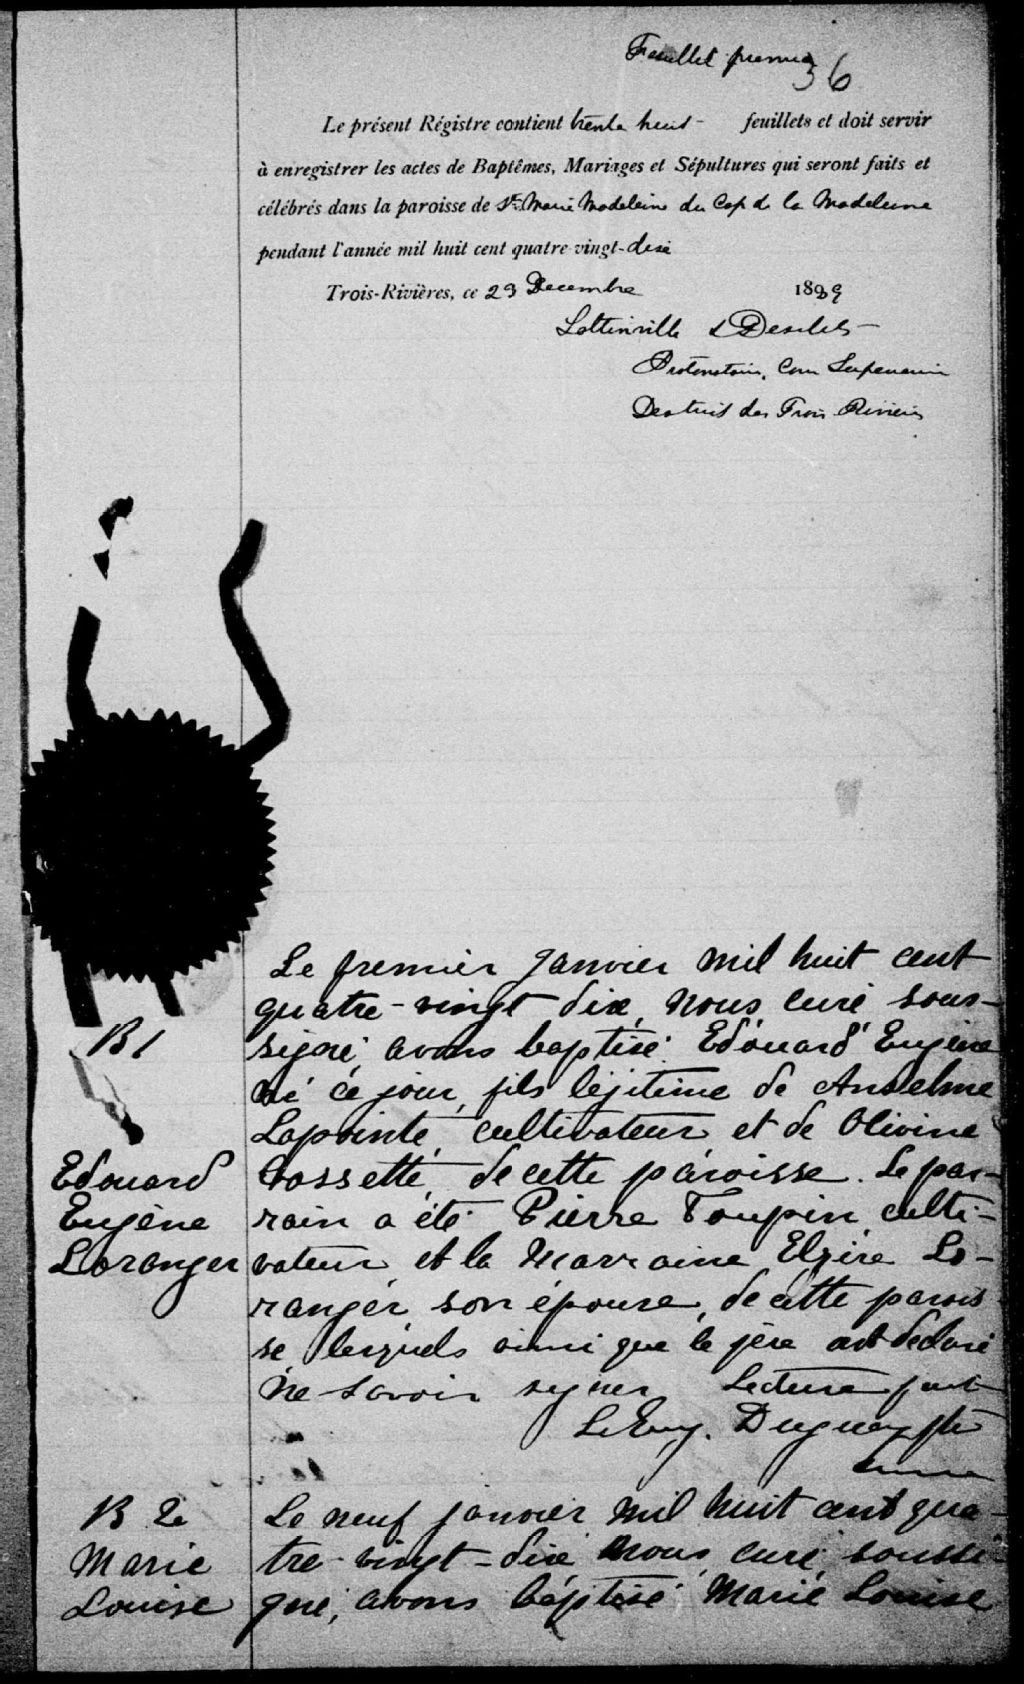 Feuillet premier
36
Le présent Régistre contient trente huit - feuillets et doit servir
à enregistrer les actes de Baptêmes, Mariages et Sépultures qui seront faits et
célébrés dans la paroisse de Ste Marie Madeleine du Cap de la Madeleine
pendant l'année mil huit cent quatre-vingt-dix
Trois-Rivières, ce 23 Decembre 1889
Lottinville & Desilets
Protonotaire, Cour Superieure
District des Trois Rivieres
Le premier janvier mil huit cent
quatre-vingt dix, nous curé sous-
signé avons baptisé Edouard Eugène
né ce jour, fils légitime de Anselme
Lapointe, cultivateur et de Olivine
Cossette, de cette paroisse. Le par-
rain a été Pierre Toupin, culti-
vateur, et la marraine Elzire Lo-
ranger, son épouse, de cette parois
se lesquels ainsi que le père ont déclaré
ne savoir signer Lecture fait
L. Eug. Duguay, Ptre
B1
Edouard
Eugène
Loranger
B 2e
Marie
Louise
Le neuf janvier mil huit cent qua-
tre-vingt-dix nous, curé soussi-
gné, avons baptisé Marie Louise